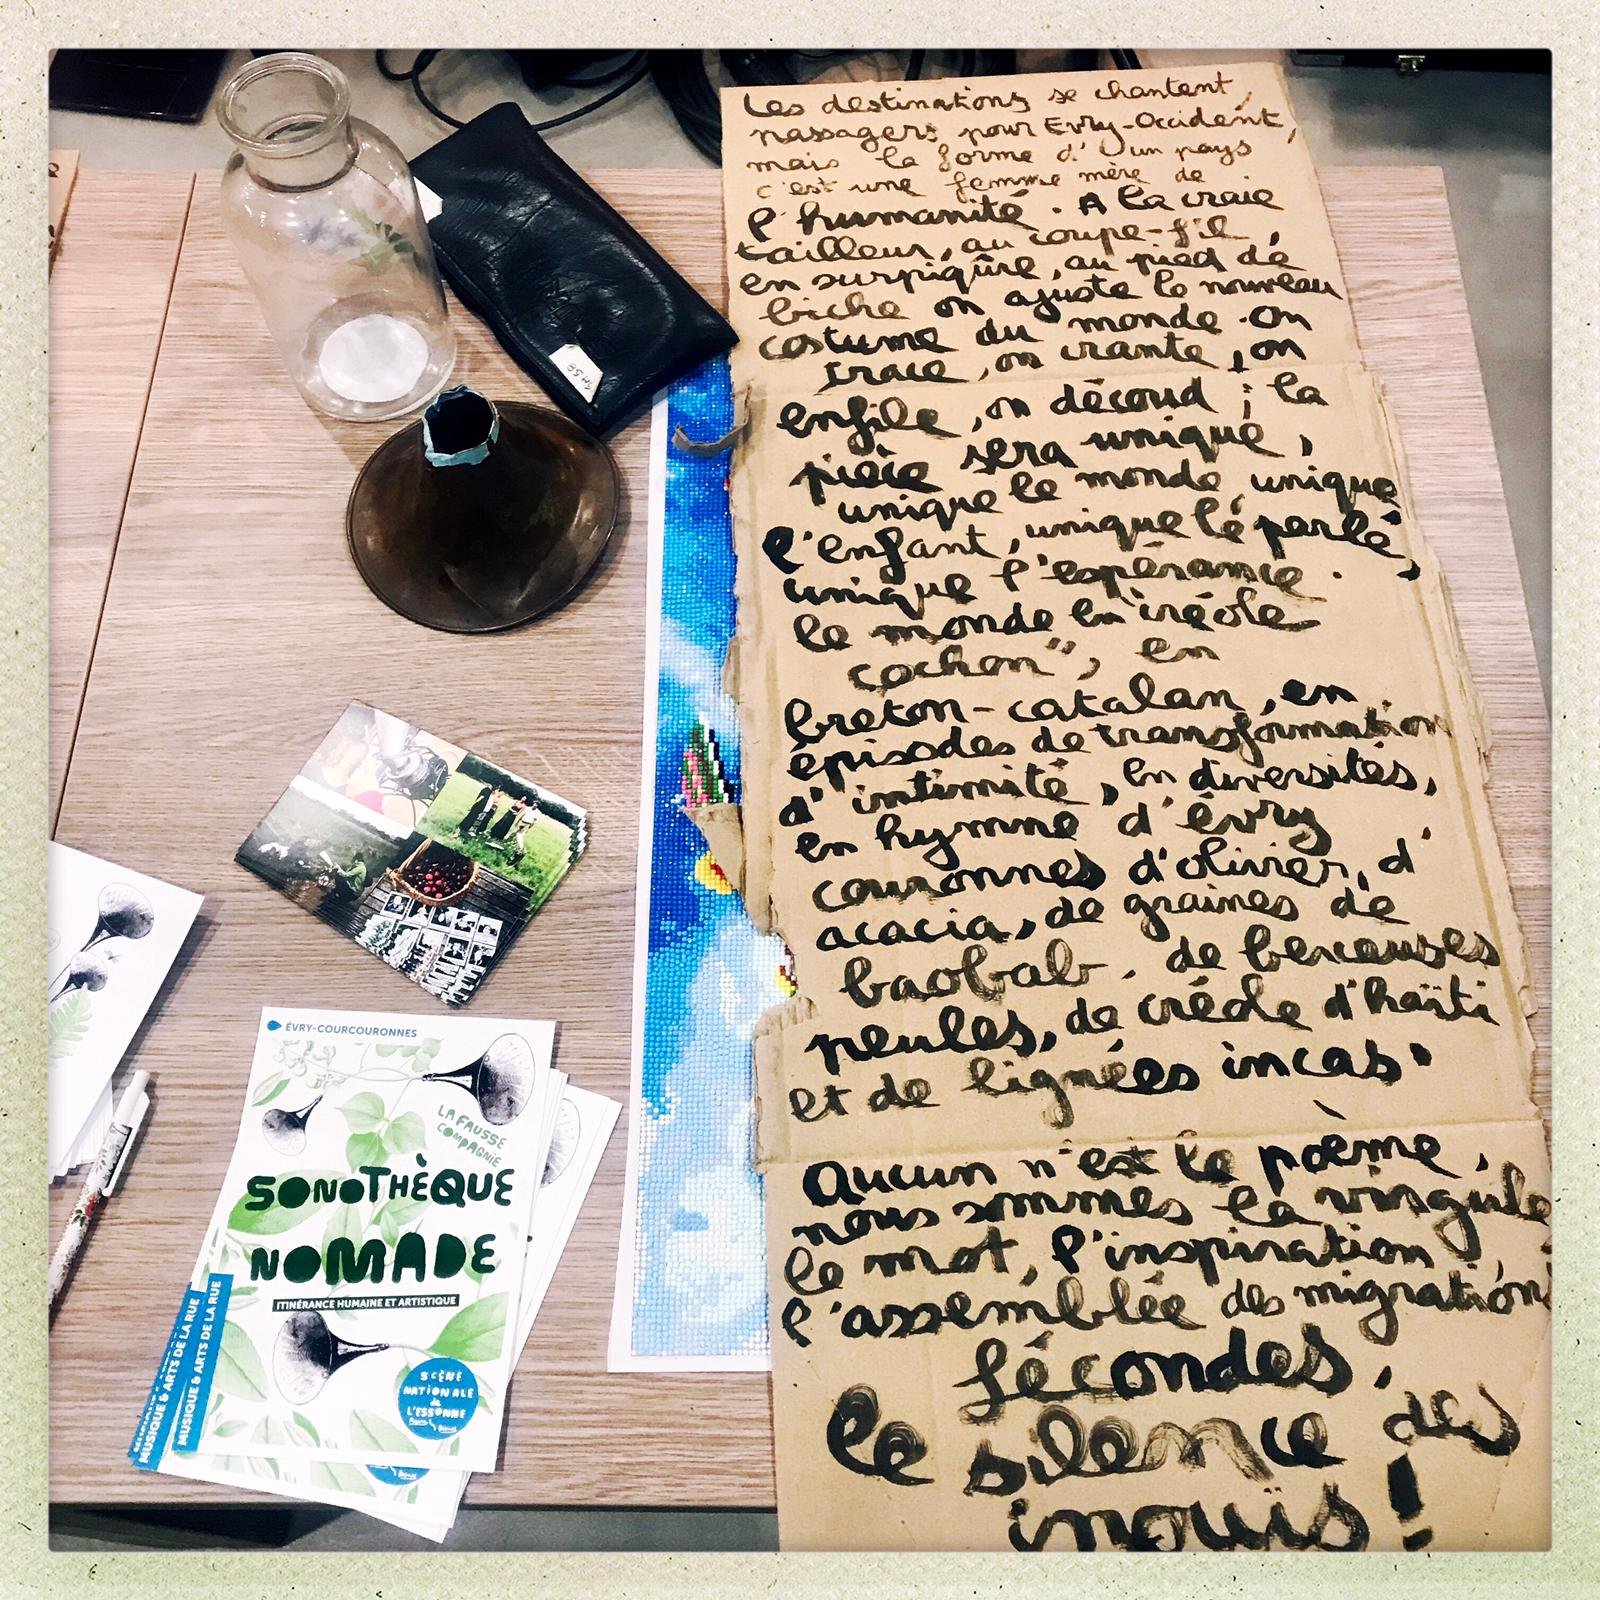 Les destinations se chantent,
passagers pour Evry-Occident,
mais la forme d'un pays
c'est une femme mère de
l'humanité. A la craie
tailleur, au coupe-fil,
en surpiqûre, au pied de
biche on ajuste le nouveau
costume du monde. On
trace, on crante, on
enfile, on découd ; la
pièce sera unique,
unique le monde, unique
l'enfant, unique le parlé,
unique l'espérance.
le monde en "créole
cochon", en
breton-catalan, en
épisodes de transformation
d'intimité, en diversités,
en hymne d'évry
couronnes d'olivier, d'
acacia, de graines de
baobab. de berceuses
peules, de créole d'haïti
et de lignées incas.
Aucun n'est le poème,
nous sommes la virgule
le mot, l'inspiration,
l'assemblée des migrations
fécondes,
le silence des
inouïs !
ÉVRY-COURCOURONNES
LA FAUSSE
COMPAGNIE
SONOTHÈQUE
NOMADE
ITINÉRANCE HUMAINE ET ARTISTIQUE
SCÈNE
NATIONALE
de
L'ESSONNE
MUSIQUE & ARTS DE LA RUE
MUSIQUE & ARTS DE LA RUE